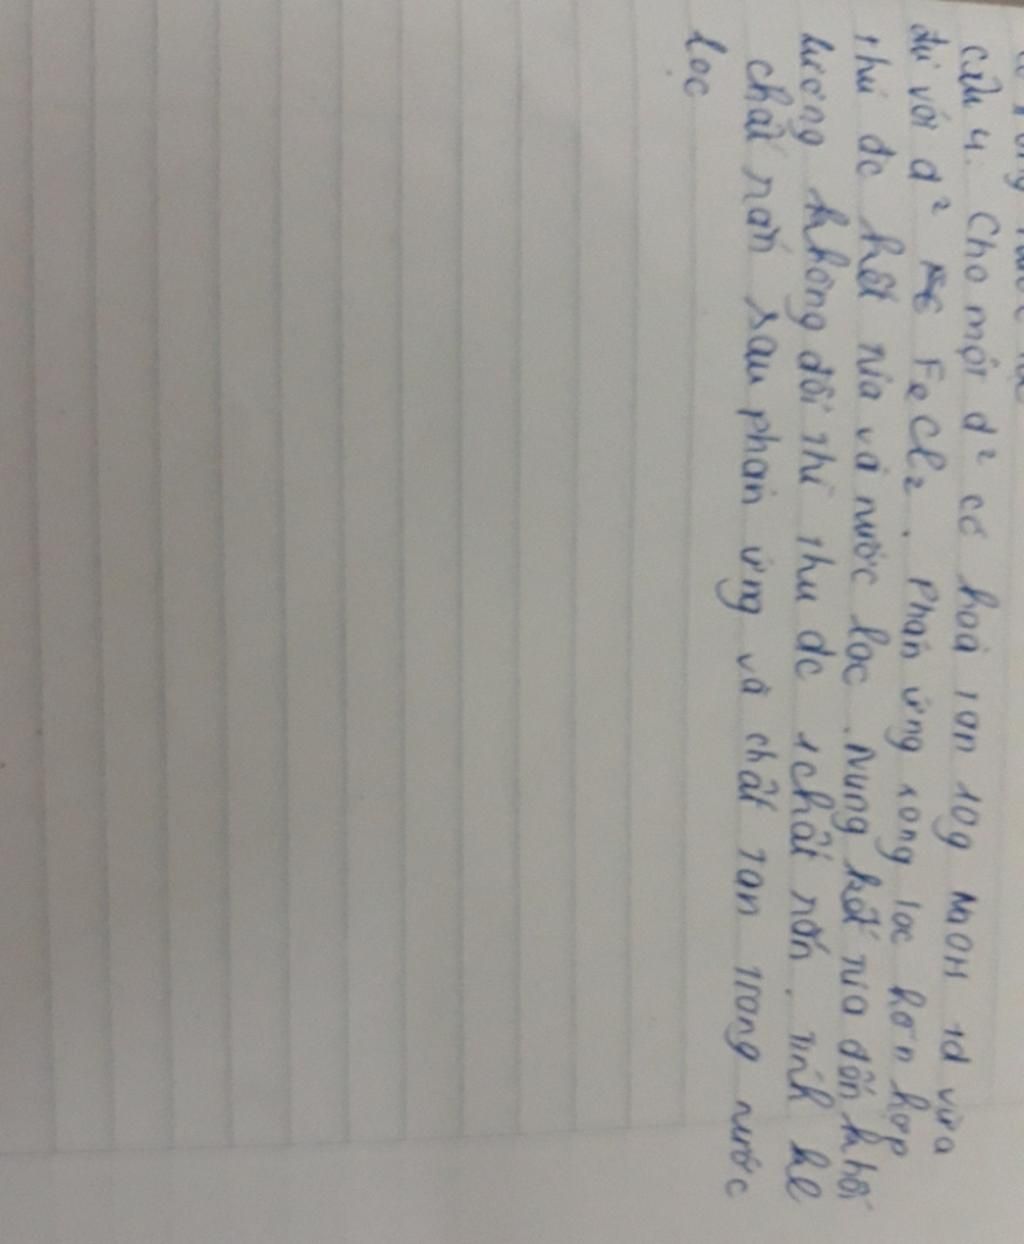 câu 4. Cho một d² có hoà tan 10g NaOH td vừa
đủ với d² FeCl₂. Phản ứng xong lọc hỗn hợp
thu đc kết tủa và nước lọc. Nung kết tủa đến khối
lượng không đổi thì thu đc 1 chất rắn. Tính kl
chất rắn sau phản ứng và chất tan trong nước
lọc